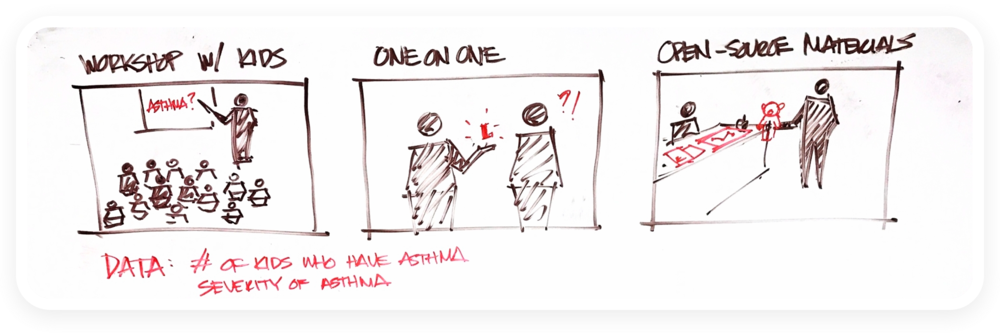 WORKSHOP W/ KIDS
ONE ON ONE
OPEN-SOURCE MATERIALS
ASTHMA?
?!
DATA: # OF KIDS WHO HAVE ASTHMA
SEVERITY OF ASTHMA